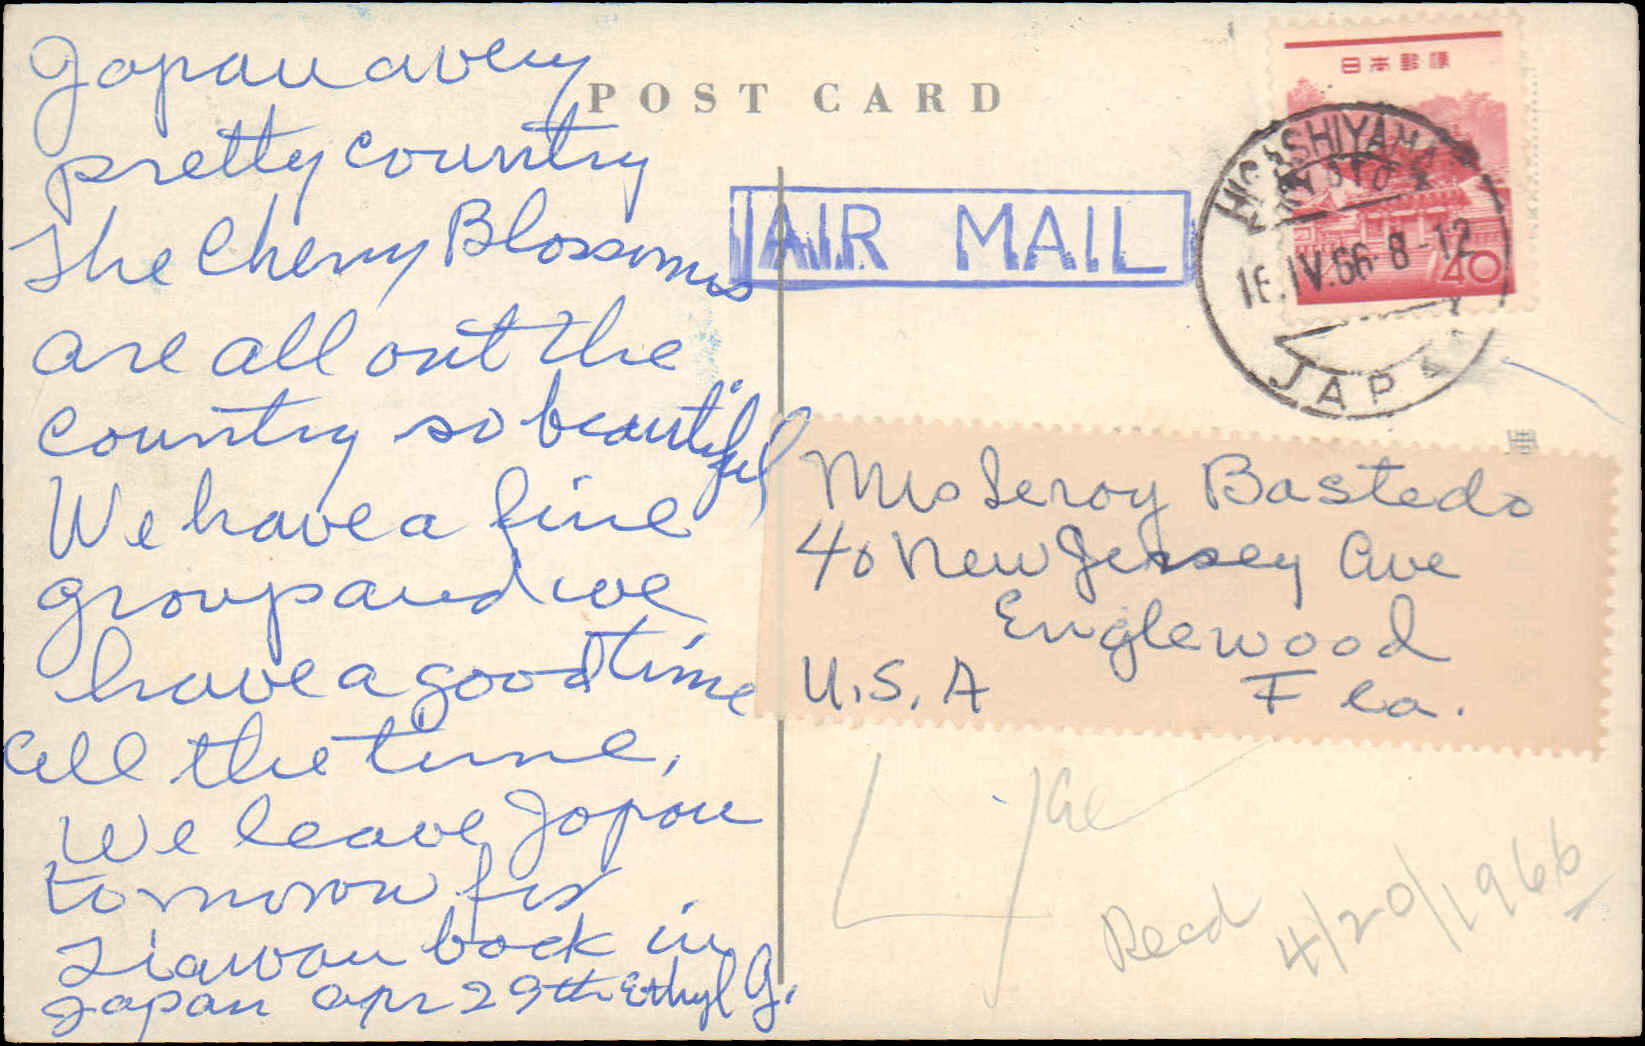 Japan a very
pretty country
The Cherry Blossoms
are all out the
country so beautiful
We have a fine
group and we
have a good time
all the time,
We leave Japan
tomorrow for
Tiawan back in
Japan Apr 29th Ethyl G.
POST CARD
AIR MAIL
日本郵便
40
HIGASHIYAMA
KYOTO
16.IV.66. 8-12
JAPAN
Mrs Leroy Bastedo
40 New Jersey Ave
Englewood
U.S.A Fla.
Recd 4/20/1966